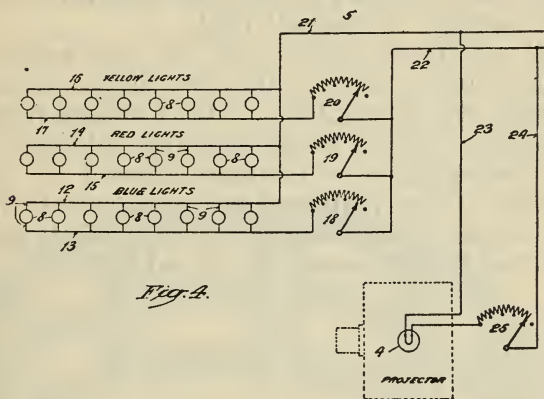 21 5
22
16 YELLOW LIGHTS
8 20
17
14 RED LIGHTS
23 24
8 9 8 19
15
BLUE LIGHTS
9 12
8 8 9 18
13
Fig. 4.
4 25
PROJECTOR